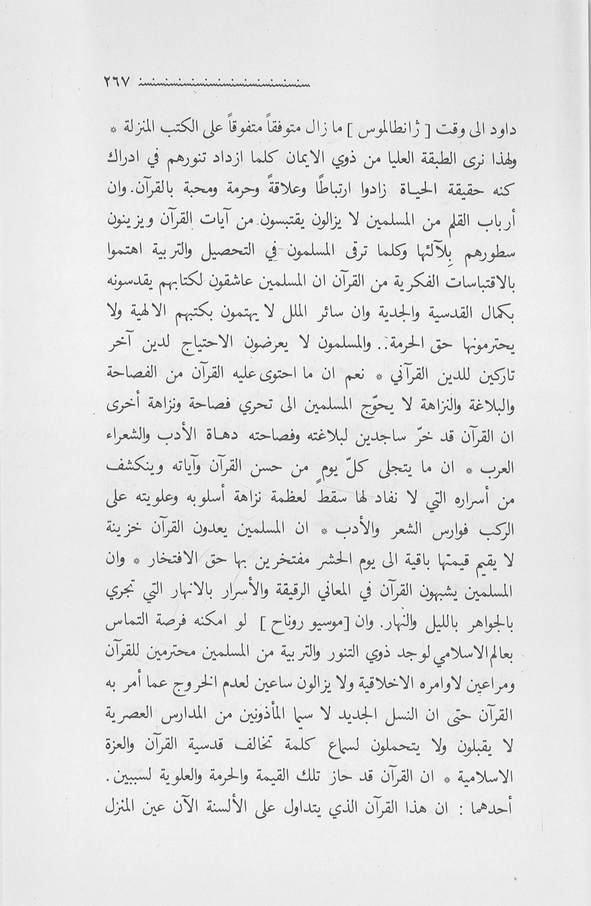 ٢٦٧
داود الى وقت [ ژانطالموس ] ما زال متوفقاً متفوقاً على الكتب المنزلة *
ولهذا نرى الطبقة العليا من ذوي الايمان كلما ازداد تنورهم في ادراك
كنه حقيقة الحياة زادوا ارتباطًا وعلاقةً وحرمة ومحبة بالقرآن. وان
أرباب القلم من المسلمين لا يزالون يقتبسون من آيات القرآن ويزينون
سطورهم بِلآلئها وكلما ترقى المسلمون في التحصيل والتربية اهتموا
بالاقتباسات الفكرية من القرآن ان المسلمين عاشقون لكتابهم يقدسونه
بكمال القدسية والجدية وان سائر الملل لا يهتمون بكتبهم الالهية ولا
يحترمونها حق الحرمة.. والمسلمون لا يعرضون الاحتياج لدين آخر
تاركين للدين القرآني * نعم ان ما احتوى عليه القرآن من الفصاحة
والبلاغة والنزاهة لا يحوّج المسلمين الى تحري فصاحة ونزاهة أخرى
ان القرآن قد خرّ ساجدين لبلاغته وفصاحته دهاة الأدب والشعراء
العرب * ان ما يتجلى كلّ يومٍ من حسن القرآن وآياته وينكشف
من أسراره التي لا نفاد لها سقط لعظمة نزاهة أسلوبه وعلويته على
الركب فوارس الشعر والأدب * ان المسلمين يعدون القرآن خزينة
لا يقيم قيمتها باقية الى يوم الحشر مفتخرين بها حق الافتخار * وان
المسلمين يشبهون القرآن في المعاني الرقيقة والأسرار بالانهار التي تجري
بالجواهر بالليل والنهار. وان [موسيو روناح ] لو امكنه فرصة التماس
بعالم الاسلامي لوجد ذوي التنور والتربية من المسلمين محترمين للقرآن
ومراعين لاوامره الاخلاقية ولا يزالون ساعين لعدم الخروج عما أمر به
القرآن حتى ان النسل الجديد لا سيما المأذونين من المدارس العصرية
لا يقبلون ولا يتحملون لسماع كلمة تخالف قدسية القرآن والعزة
الاسلامية * ان القرآن قد حاز تلك القيمة والحرمة والعلوية لسببين.
أحدهما : ان هذا القرآن الذي يتداول على الألسنة الآن عين المنزل